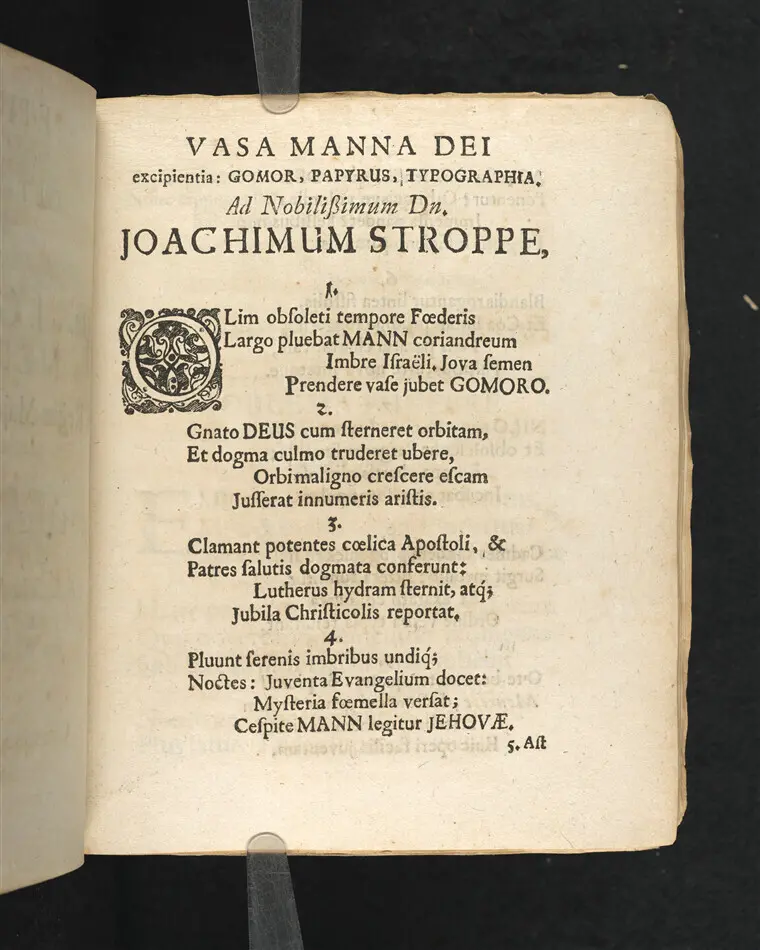 VASA MANNA DEI
excipientia: GOMOR, PAPYRUS, TYPOGRAPHIA.
Ad Nobilißimum Dn.
JOACHIMUM STROPPE,
1.
OLim obſoleti tempore Fœderis
Largo pluebat MANN coriandreum
Imbre Iſraëli. Jova ſemen
Prendere vaſe jubet GOMORO.
2.
Gnato DEUS cum ſterneret orbitam,
Et dogma culmo truderet ubere,
Orbi maligno creſcere eſcam
Juſſerat innumeris ariſtis.
3.
Clamant potentes cœlica Apoſtoli, &
Patres ſalutis dogmata conferunt:
Lutherus hydram ſternit, atq́;
Jubila Chriſticolis reportat.
4.
Pluunt ſerenis imbribus undiq́;
Noctes: Juventa Evangelium docet:
Myſteria fœmella verſat;
Ceſpite MANN legitur JEHOVÆ.
5. Aſt